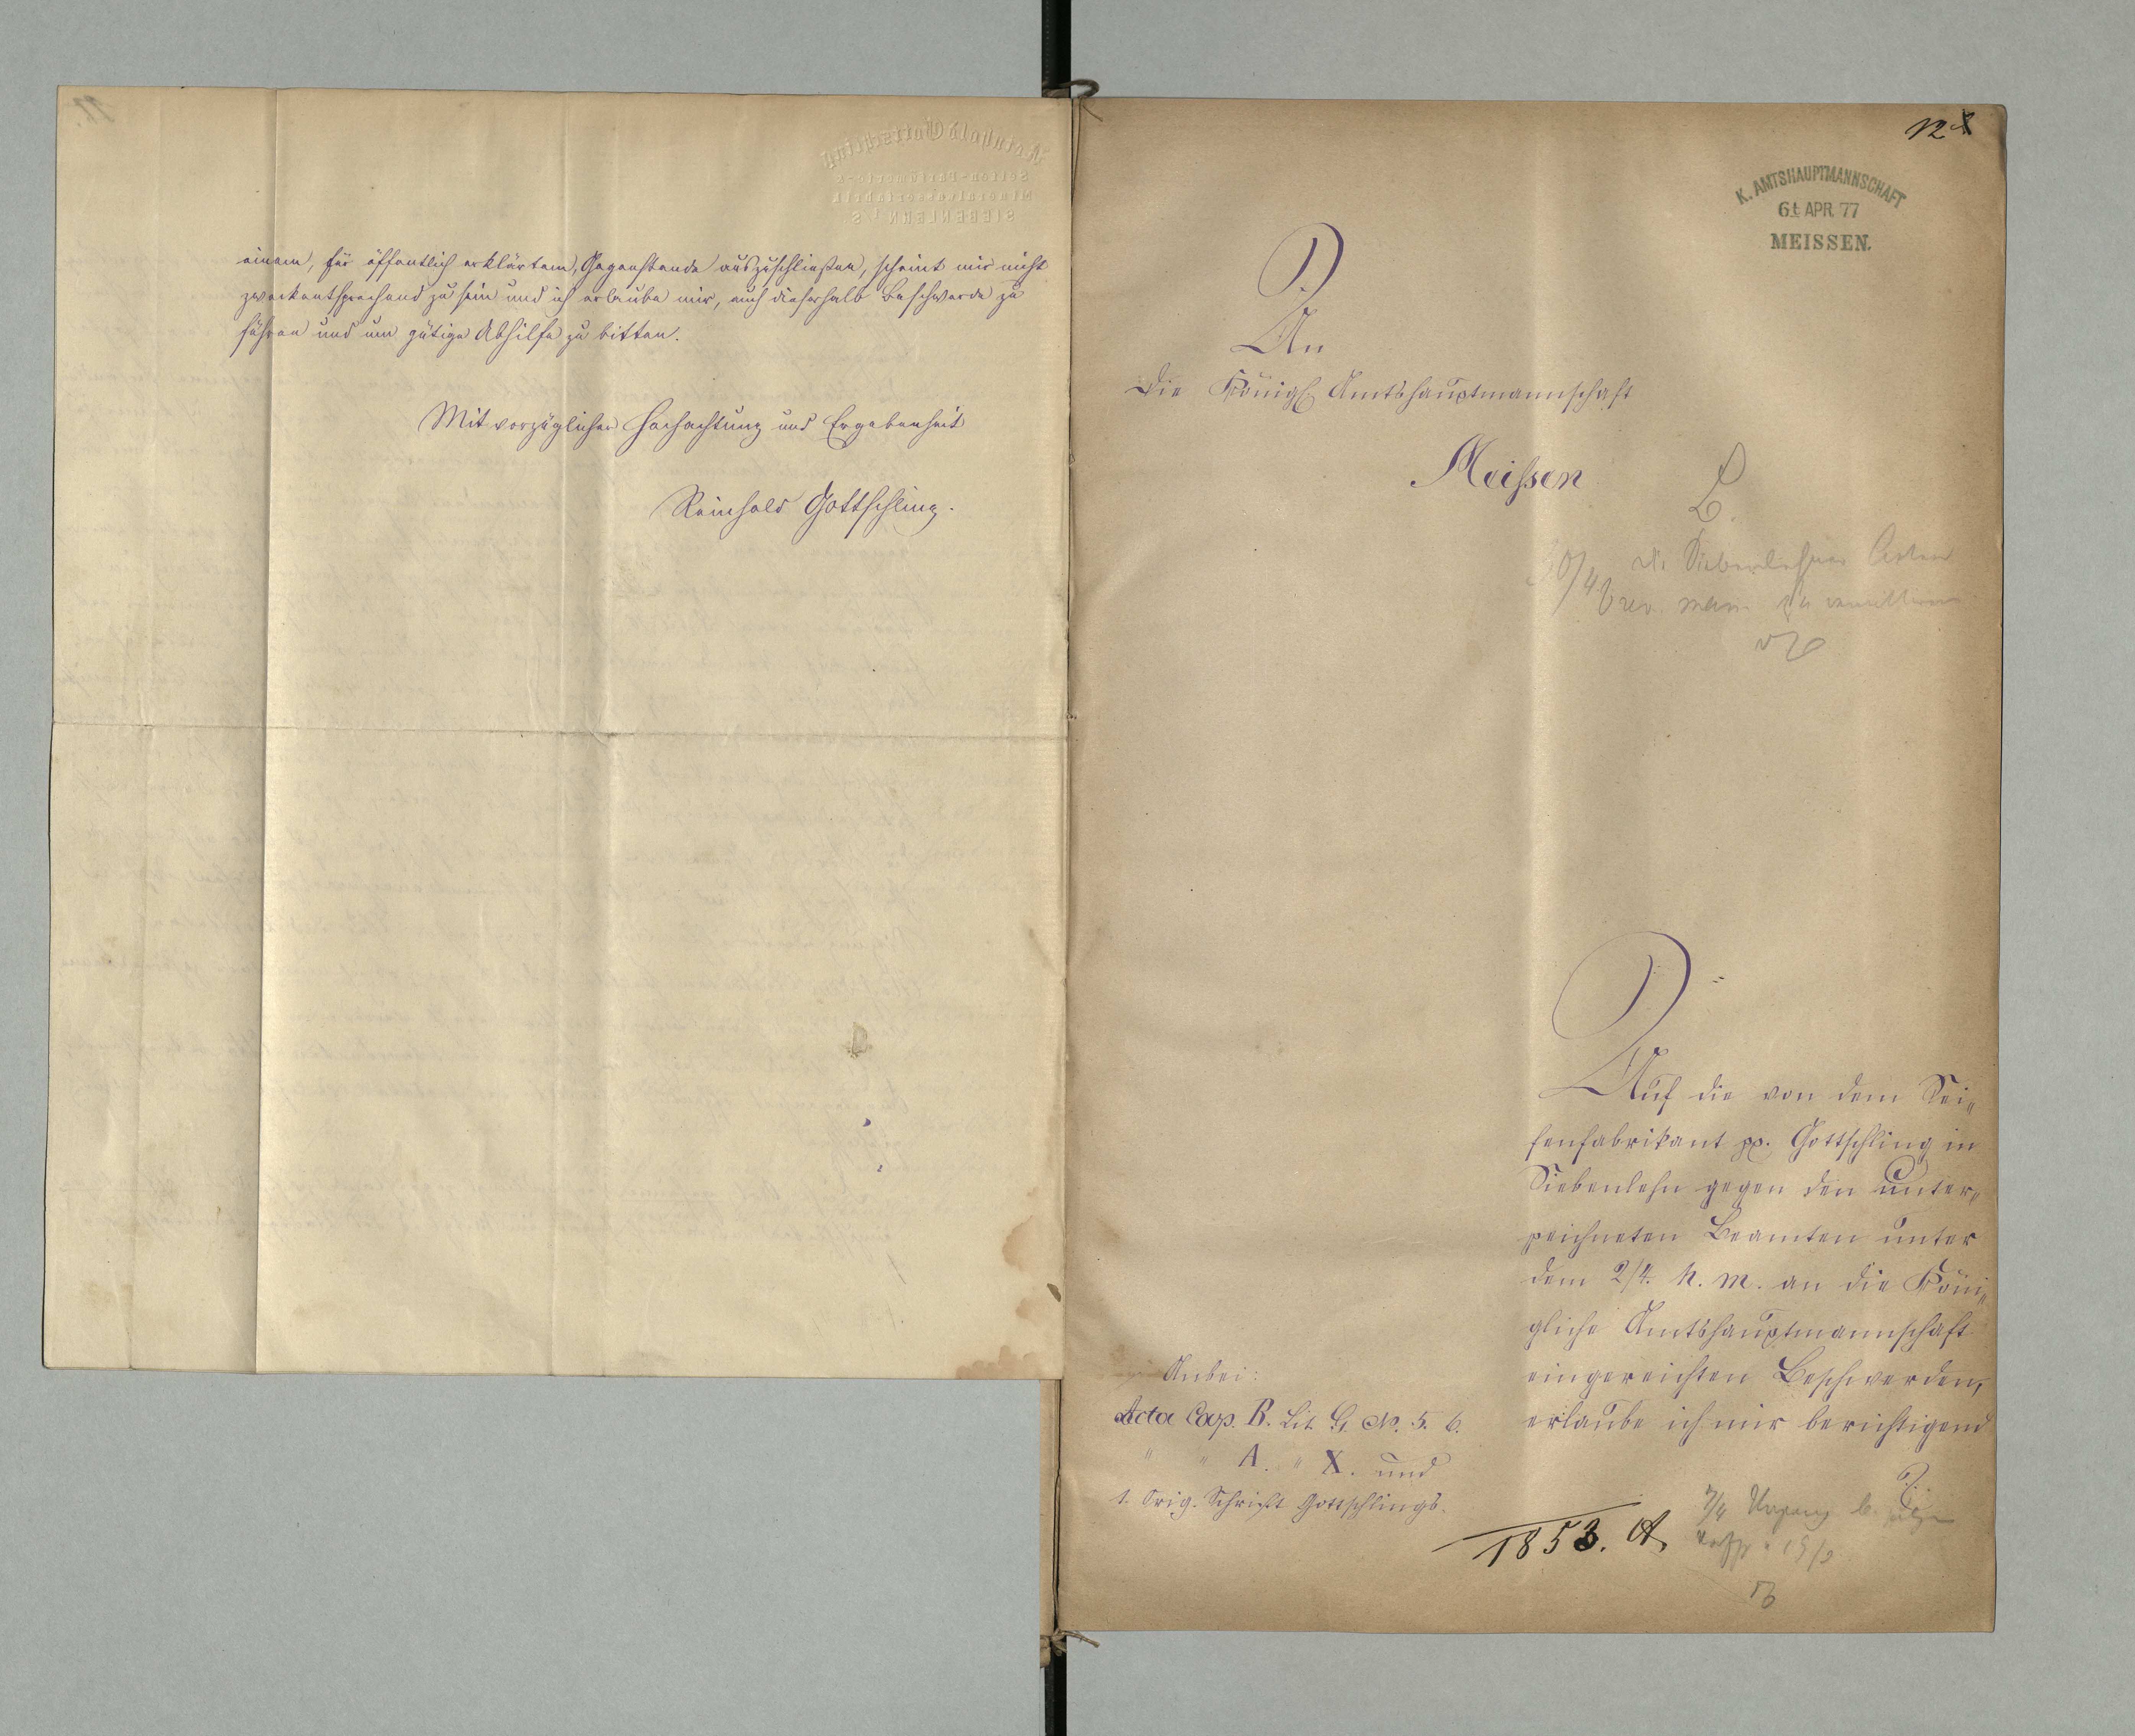 einem, für öffentlich erklärten, Gegenstande auszuschließen, scheint mir nicht
zweckentsprechend zu sein und ich erlaube mir, auch dieserhalb Beschwerde zu
führen und um gütige Abhilfe zu bitten.
Mit vorzüglicher Hochachtung und Ergebenheit
Reinhold Gottschling.
12
K. AMTSHAUPTMANNSCHAFT
6t APR. 77
MEISSEN.
An
die Königl. Amtshauptmannschaft
Meissen
B.
die Siebenlehner Acten
Auf die von dem Sei„
fenfabrikant pp. Gottschling in
Siebenlehn gegen den unter„
zeichneten Beamten unter
dem 2/4. h. m. an die Köni„
gliche Amtshauptmannschaft
eingereichten Beschwerden,
erlaube ich mir berichtigend
Anbei:
Acta Cap. B. Lit. G. No. 5. 6.
" " A. " X. und
1. Orig. Schrift Gottschlings.
1853. A.